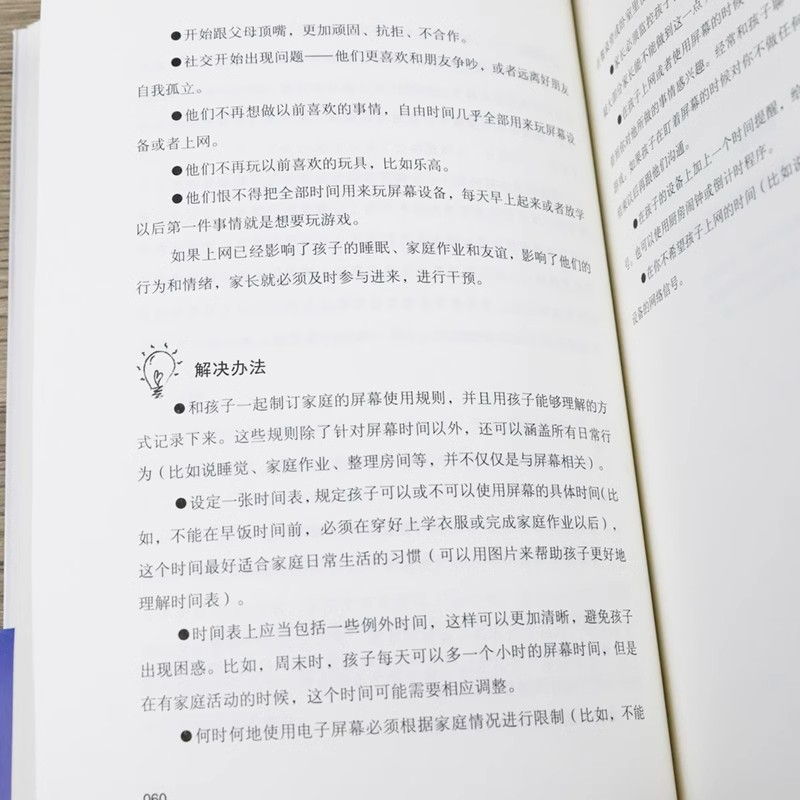 ●开始跟父母顶嘴，更加顽固、抗拒、不合作。
●社交开始出现问题——他们更喜欢和朋友争吵，或者远离好朋友
自我孤立。
●他们不再想做以前喜欢的事情，自由时间几乎全部用来玩屏幕设
备或者上网。
●他们不再玩以前喜欢的玩具，比如乐高。
●他们恨不得把全部时间用来玩屏幕设备，每天早上起来或者放学
以后第一件事情就是想要玩游戏。
如果上网已经影响了孩子的睡眠、家庭作业和友谊，影响了他们的
行为和情绪，家长就必须及时参与进来，进行干预。
解决办法
●和孩子一起制订家庭的屏幕使用规则，并且用孩子能够理解的方
式记录下来。这些规则除了针对屏幕时间以外，还可以涵盖所有日常行
为（比如说睡觉、家庭作业、整理房间等，并不仅仅是与屏幕相关）。
●设定一张时间表，规定孩子可以或不可以使用屏幕的具体时间（比
如，不能在早饭时间前，必须在穿好上学衣服或完成家庭作业以后），
这个时间最好适合家庭日常生活的习惯（可以用图片来帮助孩子更好地
理解时间表）。
●时间表上应当包括一些例外时间，这样可以更加清晰，避免孩子
出现困惑。比如，周末时，孩子每天可以多一个小时的屏幕时间，但是
在有家庭活动的时候，这个时间可能需要相应调整。
●何时何地使用电子屏幕必须根据家庭情况进行限制（比如，不能
060
●家长必须监控孩子
●在孩子上网或者使用屏幕的时候
对他所做的事情感兴趣。经常和孩子聊
游戏。如果孩子在盯着屏幕的时候对你不做任何
以后再跟他们沟通。
●在孩子的设备上加上一个时间提醒，给
号，也可以使用厨房闹钟或倒计时程序。
●在你不希望孩子上网的时间（比如说
设备的网络信号。